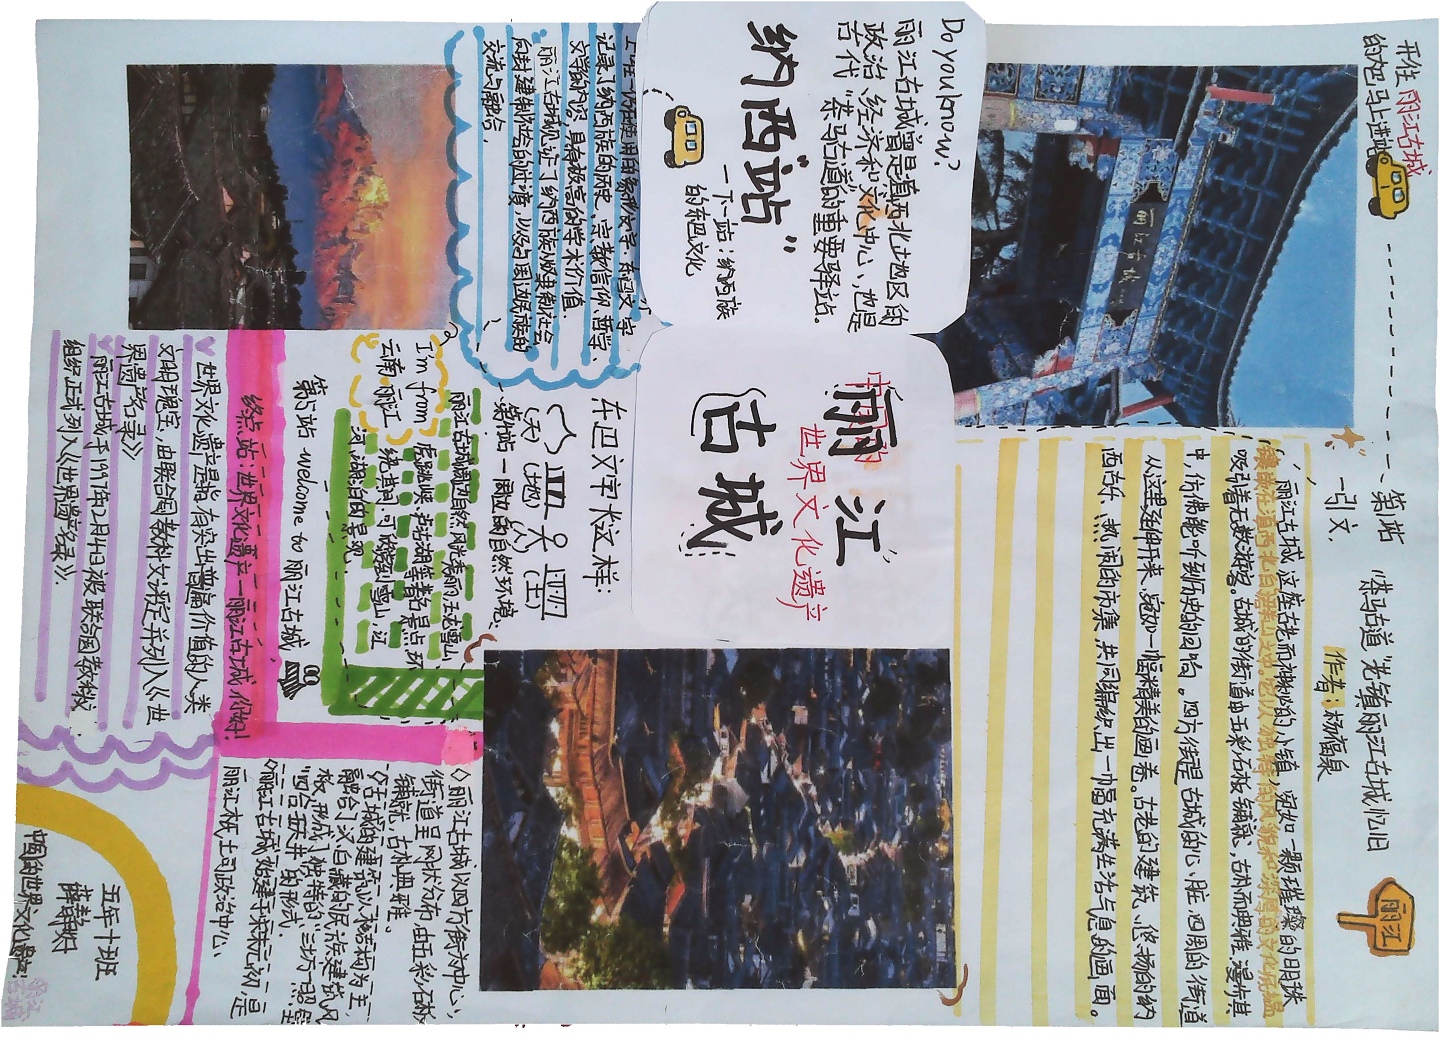 开往丽江古城
的大巴马上进站
第1站
一引文
"茶马古道"老镇丽江古城忆旧
作者：杨福泉
丽江古城，这座古老而神秘的小镇，宛如一颗璀璨的明珠
镶嵌在滇西北
吸引着无数游客。古城的街道由五彩石板铺就，古朴而典雅，漫步其
中，仿佛能听到历史的回响。四方街是古城的心脏，四周的街道
从这里延伸开来，宛如一幅精美的画卷。古老的建筑、悠扬的纳
西古乐、热闹的市集，共同编织出一幅充满生活气息的画面。
丽江
丽江古城
Do you know?
丽江古城曾是滇西北地区的
政治、经济和文化中心，也是
古代"茶马古道"的重要驿站。
"纳西站"
一下一站：纳西族
的东巴文化
丽江
古城
世界文化遗产
记录了纳西族的历史、宗教信仰、哲学、
文学等内容，具有极高的学术价值。
丽江古城见证了纳西族从奴隶制社会
向封建制社会的过渡，以及与周边民族的
交流与融合。
东巴文字长这样：
(天) (地) (人) (星)
第4站一周边的自然环境
丽江古城周边自然风光秀丽，玉龙雪山、
虎跳峡、泸沽湖等著名景点环
绕其间，可成雪山、江
河、湖泊的景观
I'm from
云南丽江
第5站 welcome to 丽江古城
终点站：世界文化遗产—丽江古城，你好！
世界文化遗产是指有突出普遍价值的人类
文明瑰宝，由联合国教科文评定并列入《世
界遗产名录》
丽江古城于1997年12月4日被联合国教科文
组织正式列入《世界遗产名录》。
◇丽江古城以四方街为中心，
街道呈网状分布，由五彩石板
铺就，古朴典雅。
◇古城的建筑以木结构为主，
融合了汉、白、藏的民族建筑风
格，形成了独特的"三坊一照壁
四合五天井"的形式。
◇丽江古城始建于宋末元初，是
丽江木氏土司政治中心、
五年十班
中国的世界文化遗产：
丽江
古城